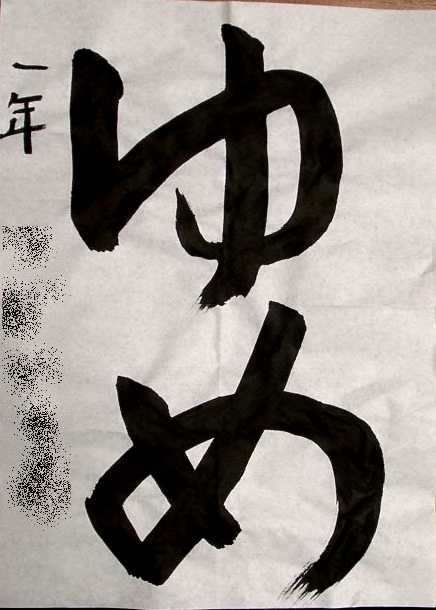 ゆめ
一年